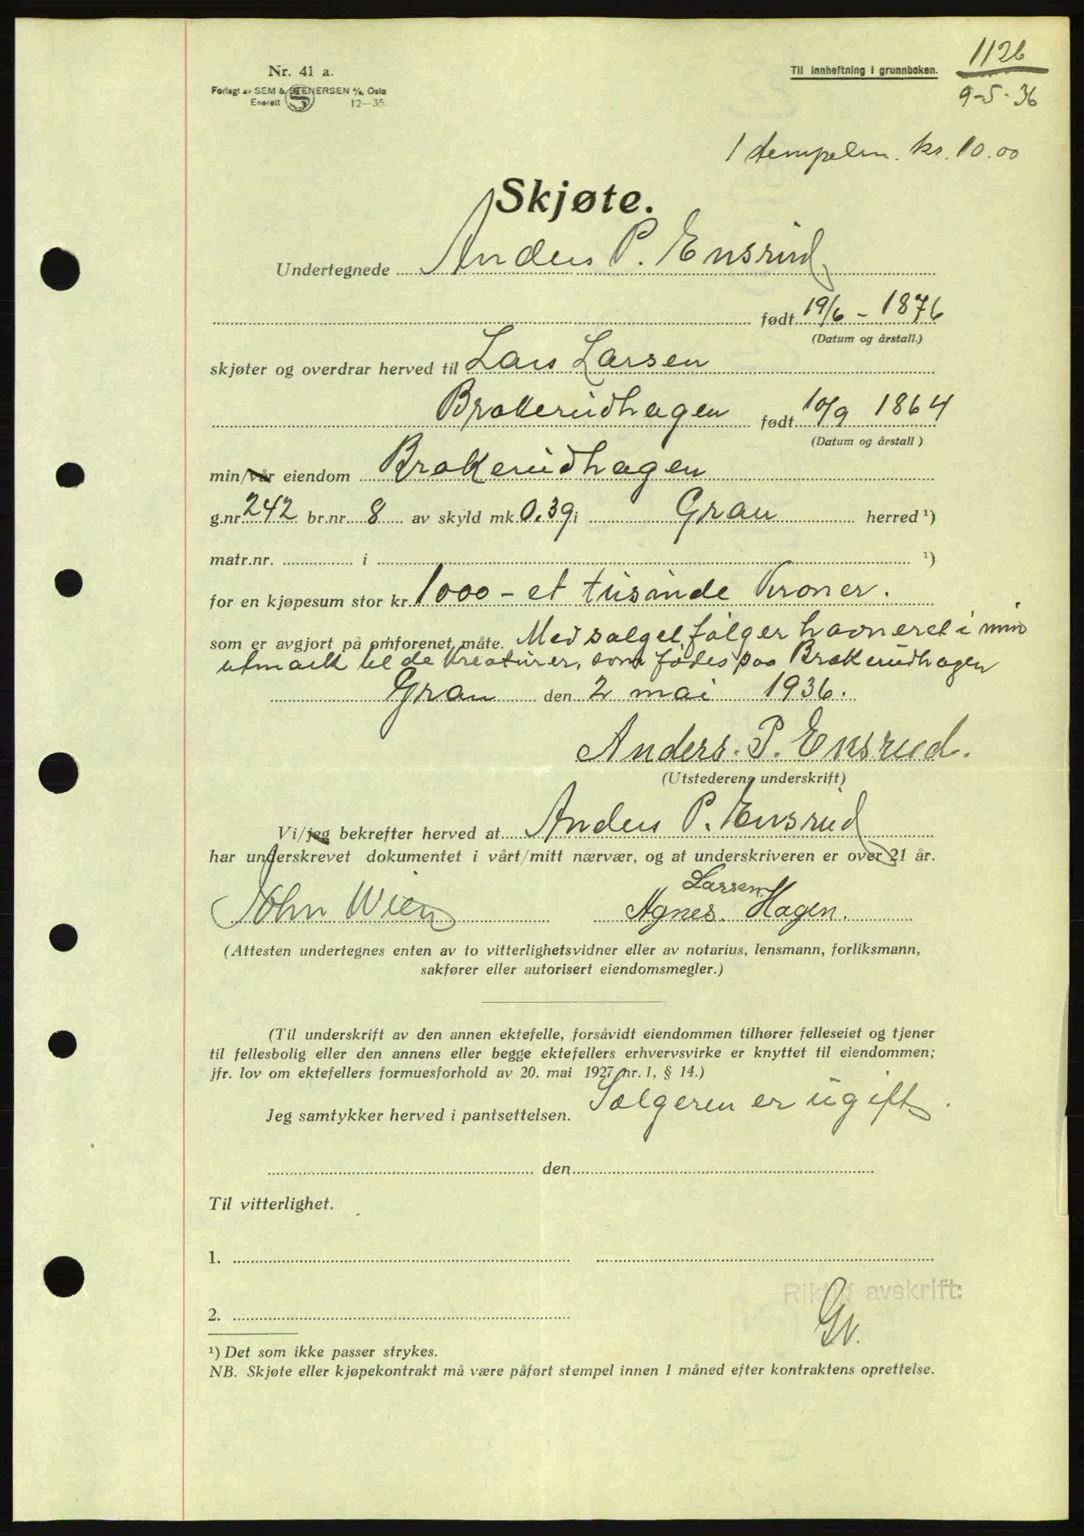 Nr. 41 a.
Forlagt av SEM & STENERSEN A/S, Oslo
Enerett S 12—35.
Til innheftning i grunnboken.
1126
9-5-36
1 stempelm. kr. 10.00
Skjøte.
Undertegnede Anders P. Ensrud
født 19/6 - 1876
(Datum og årstall.)
skjøter og overdrar herved til Lars Larsen
Brakerudhagen født 10/9 1864
(Datum og årstall)
min/vår eiendom Brakerudhagen
g.nr. 242 br.nr. 8 av skyld mk. 0.39 i Gran herred ¹)
matr.nr. i ¹)
for en kjøpesum stor kr. 1000 - et tusinde Kroner.
som er avgjort på omforenet måte. Med salget følger havneret i min
utmark til de kreaturer, som fødes paa Brakerudhagen
Gran den 2 mai 1936.
Anders. P. Ensrud.
(Utstederens underskrift)
Vi/jeg bekrefter herved at Anders P. Ensrud
har underskrevet dokumentet i vårt/mitt nærvær, og at underskriveren er over 21 år.
Larsen
John Wien Agnes. Hagen.
(Attesten undertegnes enten av to vitterlighetsvidner eller av notarius, lensmann, forliksmann,
sakfører eller autorisert eiendomsmegler.)
(Til underskrift av den annen ektefelle, forsåvidt eiendommen tilhører felleseiet og tjener
til fellesbolig eller den annens eller begge ektefellers erhvervsvirke er knyttet til eiendommen;
jfr. lov om ektefellers formuesforhold av 20. mai 1927 nr. 1, § 14.)
Jeg samtykker herved i pantsettelsen. Sælgeren er ugift.
den
Til vitterlighet.
1.
Riktig avskrift:
2.
Gv.
¹) Det som ikke passer strykes.
NB. Skjøte eller kjøpekontrakt må være påført stempel innen 1 måned efter kontraktens oprettelse.